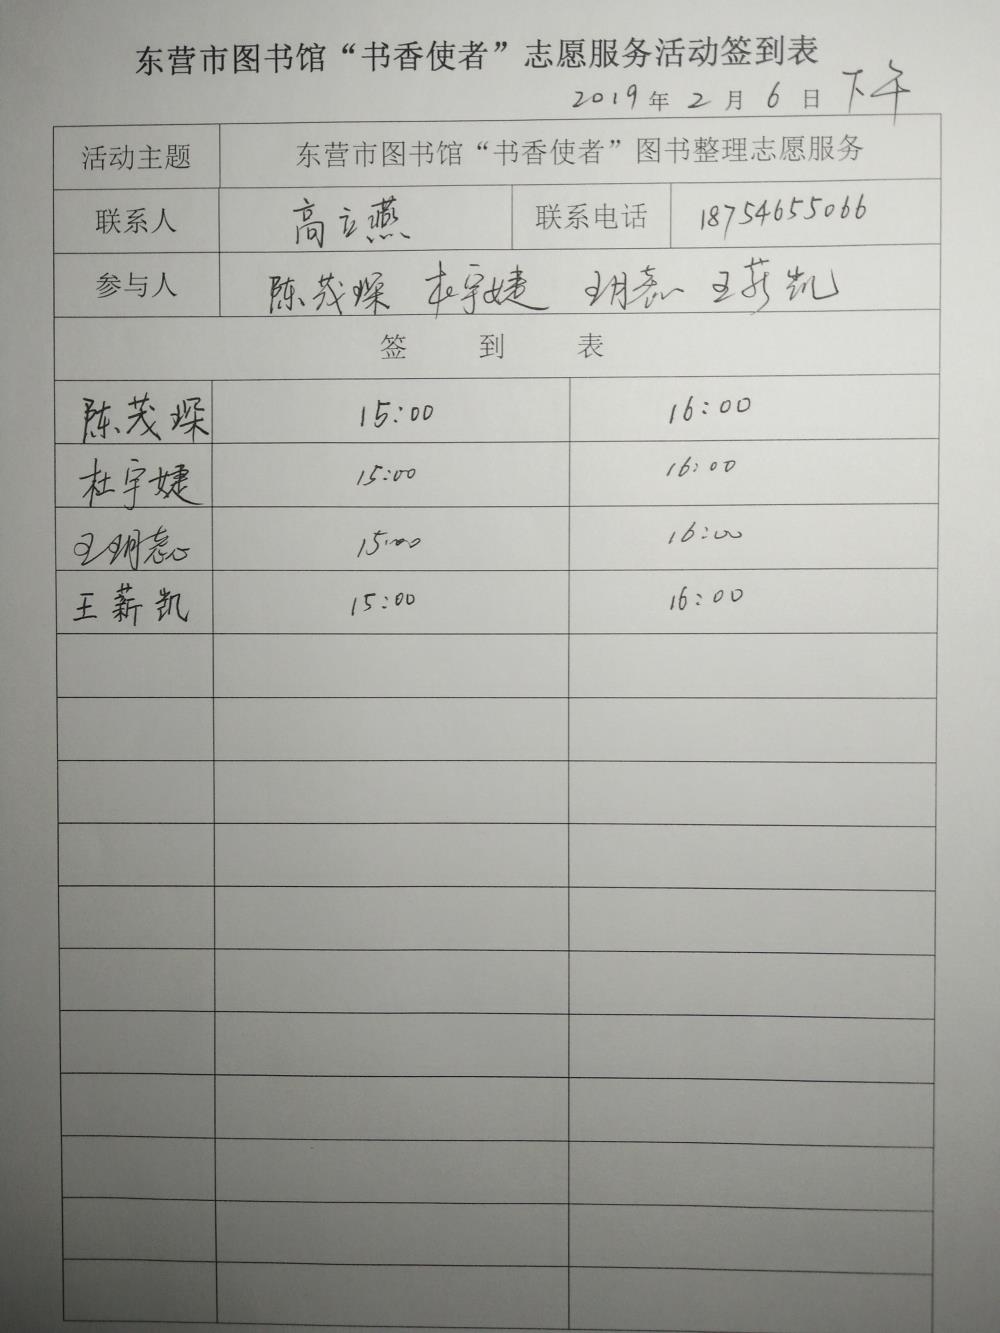 东营市图书馆“书香使者”志愿服务活动签到表
2019年2月6日 下午
活动主题 东营市图书馆“书香使者”图书整理志愿服务
联系人 高立燕 联系电话 18754655066
参与人 陈茂琛 杜宇婕 王玥懿 王薪凯
签 到 表
陈茂琛 15:00 16:00
杜宇婕 15:00 16:00
王玥 15:00 16:00
王薪凯 15:00 16:00